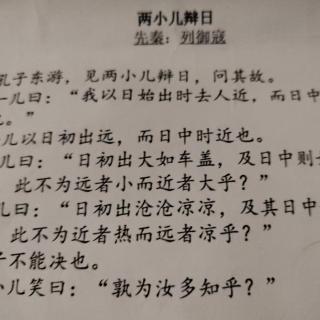 两小儿辩日
先秦：列御寇
孔子东游，见两小儿辩日，问其故。
一儿曰：“我以日始出时去人近，而日中
。”
儿以日初出远，而日中时近也。
儿曰：“日初出大如车盖，及日中则
此不为远者小而近者大乎？”
儿曰：“日初出沧沧凉凉，及其日中
此不为近者热而远者凉乎？”
子不能决也。
小儿笑曰：“孰为汝多知乎？”